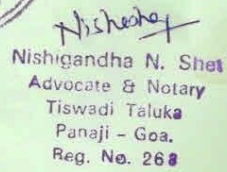 Nisheshet
Nishigandha N. Shet
Advocate & Notary
Tiswadi Taluka
Panaji - Goa.
Reg. No. 268